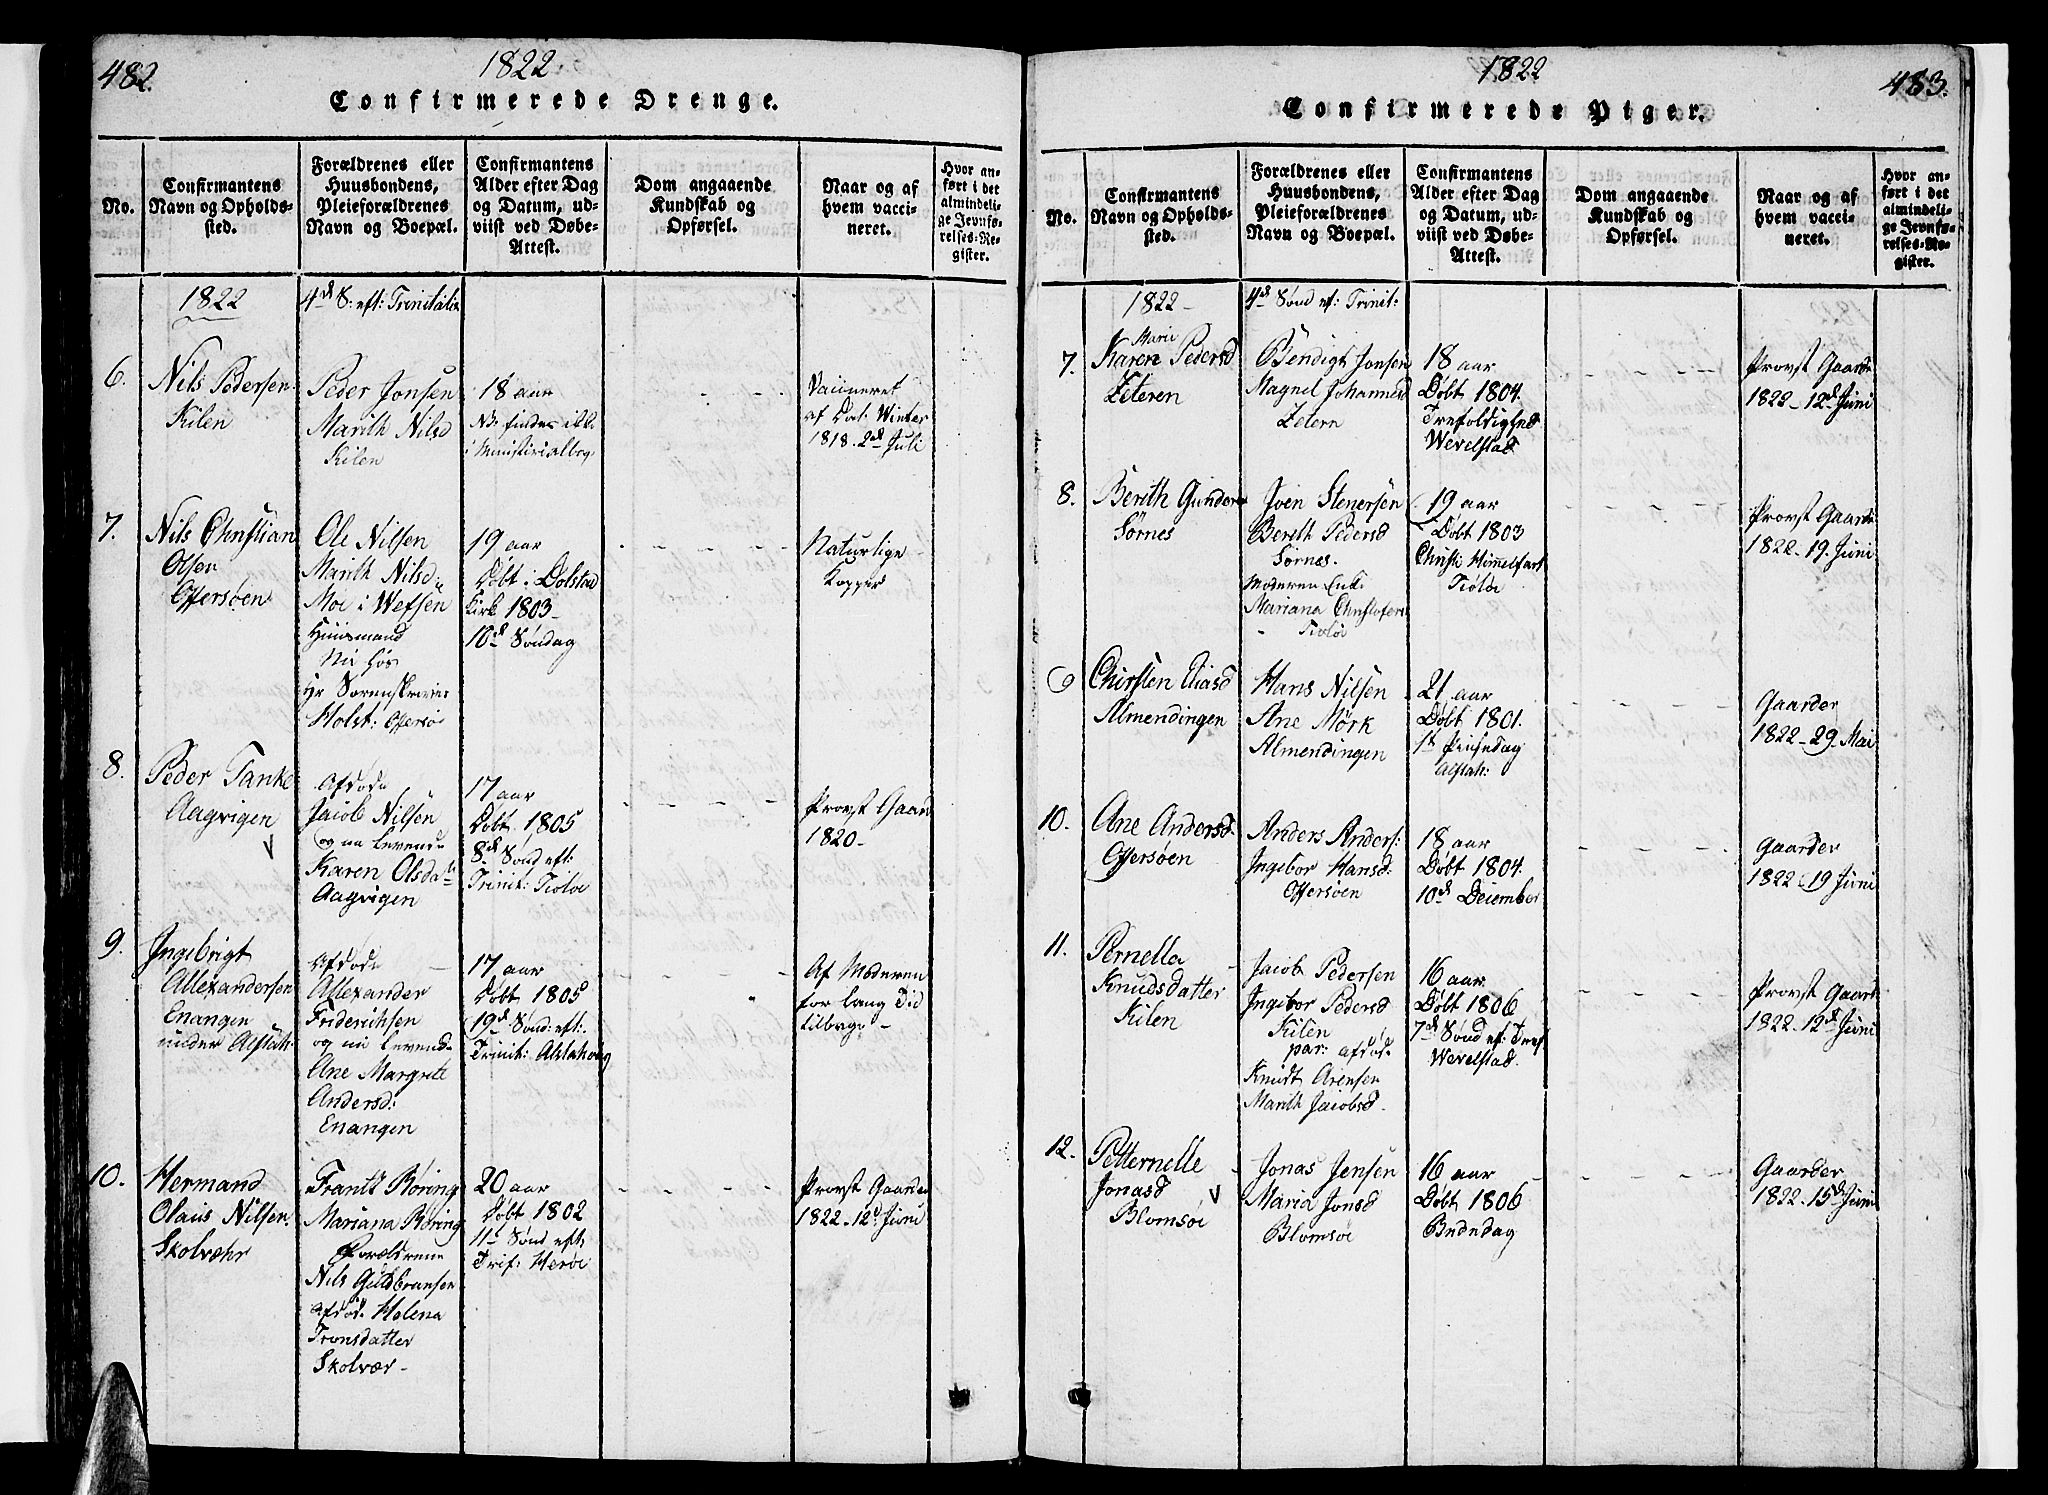 482.
1822
Confirmerede Drenge.
No.
Confirmantens
Navn og Opholds-
sted.
Forældrenes eller
Huusbondens,
Pleieforældrenes
Navn og Boepæl.
Confirmantens
Alder efter Dag
og Datum, ud-
viist ved Døbe-
Attest.
Dom angaaende
Kundskab og
Opførsel.
Naar og af
hvem vacci-
neret.
Hvor an-
ført i det
almindeli-
ge Jevnfø-
relses-Re-
gister.
1822
4de S: eft: Trinitatis
6.
Nils Pedersen
Kilen
Peder Jonsen
Marith Nilsd
Kilen
18 aar
NB findes ikke
i Ministerialbog
Vaccineret
af Doct: Winter
1818. 2de Juli
7.
Nils Christian
Olsen
Offersøen
Ole Nilsen
Marith Nilsd:
Moe i Wefsen
Huusmand
Nu hos
Hr Sorenskriver
Holst: Offersø
19 aar
Døbt i Dolstad
Kirk 1803
10de Søndag
Naturlige
Kopper
8.
Peder Tanke
Aagvigen
Afdøde
Jacob Nilsen
og nu levende
Karen Olsdat
Aagvigen
17 aar
Døbt 1805
8de Sønd eft:
Trinit: Tiøtøe
Provst Gaard
1820
9.
Ingebrigt
Allexandersen
Enangen
under Alstah:
Afdøde
Allexander
Friderichsen
og nu levend
Ane Margrete
Andersd:
Enangen
17 aar
Døbt 1805
19de Sønd: eft:
Trinit: Alstahoug
Af Moderen
for lang Tid
tilbage
10.
Hermand
Olaus Nilsen
Skolvæhr
Frantz Røring
Mariana Røring
Forældrene
Nils Guldbransen
afdød. Helena
Tronsdatter
Skolvær
20 aar
Døbt 1802
11te Sønd eft
Trif: Herøe
Provst Gaarder
1822. 12te Juni
1822
483.
Confirmerede Piger.
No.
Confirmantens
Navn og Opholds-
sted.
Forældrenes eller
Huusbondens,
Pleieforældrenes
Navn og Boepæl.
Confirmantens
Alder efter Dag
og Datum, ud-
viist ved Døbe-
Attest.
Dom angaaende
Kundskab og
Opførsel.
Naar og af
hvem vacci-
neret.
Hvor an-
ført i det
almindeli-
ge Jevnfø-
relses-Re-
gister.
1822
4de Sønd ef: Trinit:
7.
Marie
Karen Pedersd
Zeteren
Bendigt Jonsen
Magnel Johannesd
Zetern
18 aar
Døbt 1804
Trefoldighed
Wevelstad
Provst Gaarde
1822 12te Juni
8.
Berith Gunders
Sørnes
Iven Stenersen
Berith Pedersd
Sørnes.
Moderen Enke
Mariana Christofers
Tiøtøe
19 aar
Døbt 1803
Christi Himmelfart
Tiøtøe
Provst Gaarde
1822. 19. Juni
9
Chirsten Eliasd
Almendingen
Hans Nilsen
Ane Mørk
Almendingen
21 aar
Døbt 1801.
1te Pintsedag
Alstah:
Gaarder
1822 29. Mai
10.
Ane Andersd
Offersøen
Anders Anders:
Ingebor Hansd:
Offersøen
18 aar
Døbt 1804.
10de December
Gaarder
1822 19 Juni
11.
Pernella
Knudsdatter
Kilen
Jacob Pedersen
Ingebor Pedersd
Kilen
par: afdøde
Knudt Arensen
Marith Jacobsd
16 aar
Døbt 1806
7de Sønd ef: Tref
Wevelstad
Provst Gaard
1822. 12te Juni
12.
Petternelle
Jonasd
Blomsøe
Jonas Jensen
Maria Jonsd
Blomsøe
16 aar
Døbt 1806
Bededag
Gaarder
1822. 15de Juni